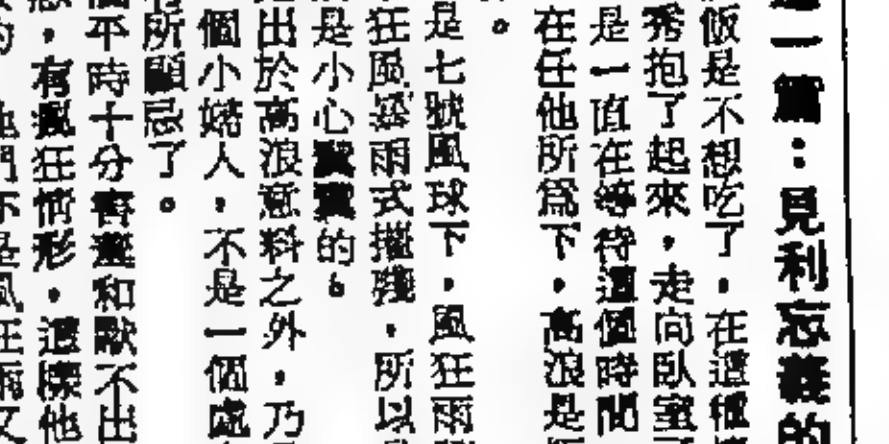 一篇：見利忘義的
飯是不想吃了，在這種
秀抱了起來，走向臥室
是一直在等待這個時間
在任他所為下，高浪是
。
是七號風球下，風狂雨
狂風暴雨式摧殘，所以
是小心翼翼的。
出於高浪意料之外，乃
個小婦人，不是一個處
所顧忌了。
平時十分害羞和歇不出
，有瘋狂情形，這樣他
他們不是風狂雨又